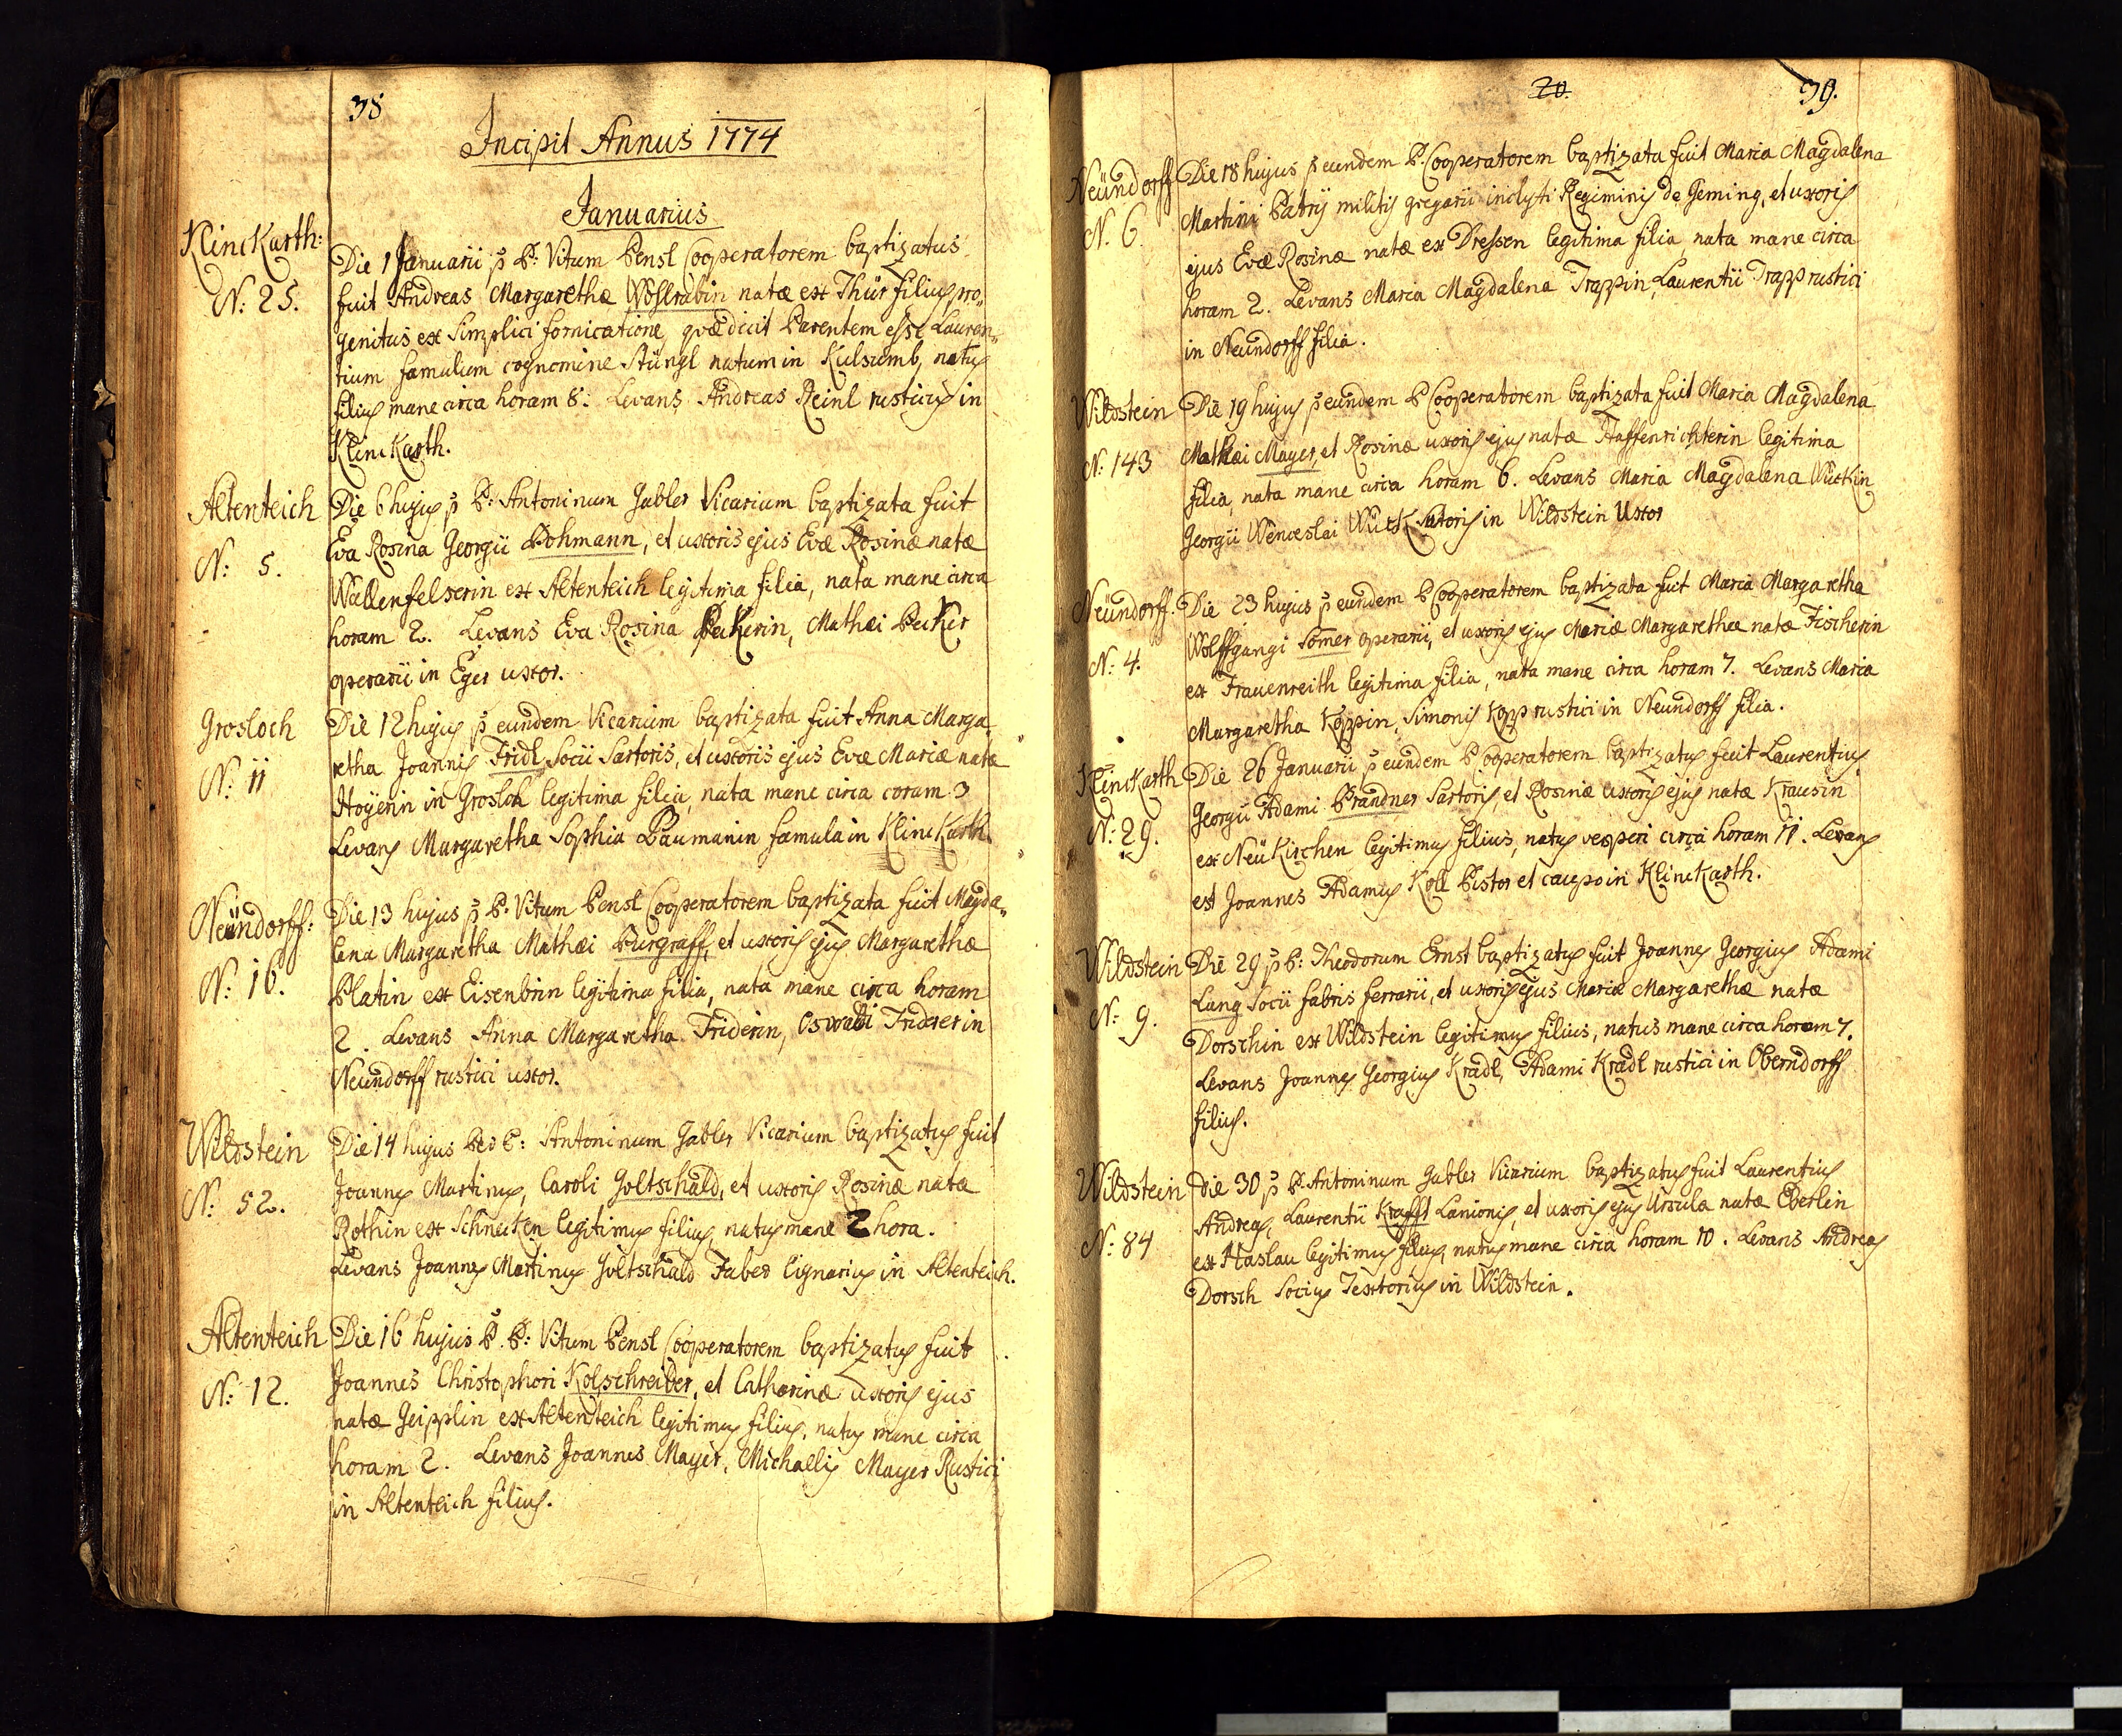 38
Incipit Annus 1774
Januarius
KlincKarth:
N: 25.
Die 1 Januarii p P: Vitum Pensl Cooperatorem baptizatus
fuit Andreas Margarethæ Wohlrabin natæ ex Thür filius pro„
genitus ex simplici fornicatione, quæ dicit Parentem esse Lauren„
tium famulum cognomine Stüngl natum in Kulsumb, natus
filius mane circa horam 8: Levans Andreas Reinl rusticus in
KlincKarth.
Altenteich
N: 5.
Die 6 hujus p P: Antoninum Gabler Vicarium baptizata fuit
Eva Rosina Georgii Pohmann, et uxoris ejus Evæ Rosinæ natæ
Wallenfelserin ex Altenteich legitima filia, nata mane circa
horam 2. Levans Eva Rosina PecKerin, Mathæi PecKer
operarii in Eger uxor.
Grosloch
N: 11
Die 12 hujus p eundem Vicarium baptizata fuit Anna Marga„
retha Joannis Fridl Socii Sartoris, et uxoris ejus Evæ Mariæ natæ
Hoyerin in Grosloh legitima filia, nata mane circa coram 3
Levans Margaretha Sophia Baumanin famula in KlincKarth.
Neündorff:
N: 16.
Die 13 hujus p P. Vitum Pensl Cooperatorem baptizata fuit Magda„
lena Margaretha Mathæi Purgraff, et uxoris ejus Margarethæ
Platin ex Eisenbrin legitima filia, nata mane circa horam
2. Levans Anna Margaretha Friderin, Oswaldi Fridrer in
Neundorff rustici uxor.
Wildstein
N: 52.
Die 14 hujus Per P: Antoninum Gabler Vicarium baptizatus fuit
Joannes Martinus, Caroli Goltschald, et uxoris Rosinæ natæ
Rothin ex SchnecKen legitimus filius, natus mane 2 hora.
Levans Joannes Martinus Goltschald Faber lignarius in Altenteich.
Altenteich
N: 12.
Die 16 hujus P. P: Vitum Pensl Cooperatorem baptizatus fuit
Joannes Christophori Kolschreiber, et Catharinæ uxoris ejus
natæ Geipplin ex Altenteich legitimus filius, natus mane circa
horam 2. Levans Joannes Mayer, Michaelis Mayer Rustici
in Altenteich filius.
20.
39.
Neündorff
N. 6.
Die 18 hujus p eundem P. Cooperatorem baptizata fuit Maria Magdalena
Martini Patris militis gregarii inclyti Regiminis de Geming, et uxoris
ejus Evæ Rosinæ natæ ex Dressen legitima filia nata mane circa
horam 2. Levans Maria Magdalena Trappin, Laurentii Trapp rustici
in Neundorff filia.
Wildstein
N: 143
Die 19 hujus p eundem P Cooperatorem baptizata fuit Maria Magdalena
Mathæi Mayer, et Rosinæ uxoris ejus natæ Haffenrichterin legitima
filia, nata mane circa horam 6. Levans Maria Magdalena WürKin
Georgii Wenceslai WürK Sutoris in Wildstein Uxor
Neündorff.
N: 4.
Die 23 hujus p eundem P Cooperatorem baptizata fuit Maria Margaretha
Wolffgangi Somer operarii, et uxoris ejus Mariæ Margarethæ natæ Fischerin
ex Frauenreith legitima filia, nata mane circa horam 7. Levans Maria
Margaretha Köppin, Simonis Kopp rustici in Neundorff filia.
KlincKarth
N: 29.
Die 26 Januarii p eundem P Cooperatorem baptizatus fuit Laurentius
Georgii Adami Prandner Sartoris, et Rosinæ uxoris ejus natæ Krausin
ex NeüKirchen legitimus filius, natus vesperi circa horam 11. Levans
est Joannes Adamus Koll Pistor et caupo in KlincKarth.
Wildstein
N: 9.
Die 29 p P: Theodorum Ernst baptizatus fuit Joannes Georgius Adami
Lang Socii fabris ferrarii, et uxoris ejus Mariæ Margarethæ natæ
Dorschin ex Wildstein legitimus filius, natus mane circa horam 7.
Levans Joannes Georgius Kradl, Adami Kradl rustici in Oberndorff
filius.
Wildstein
N: 84
Die 30 p P. Antoninum Gabler Vicarium baptizatus fuit Laurentius
Andreas, Laurentii Krafft Lanionis, et uxoris ejus Ursulæ natæ Eberlin
ex Haslau legitimus filius, natus mane circa horam 10. Levans Andreas
Dorsch Socius Textorius in Wildstein.